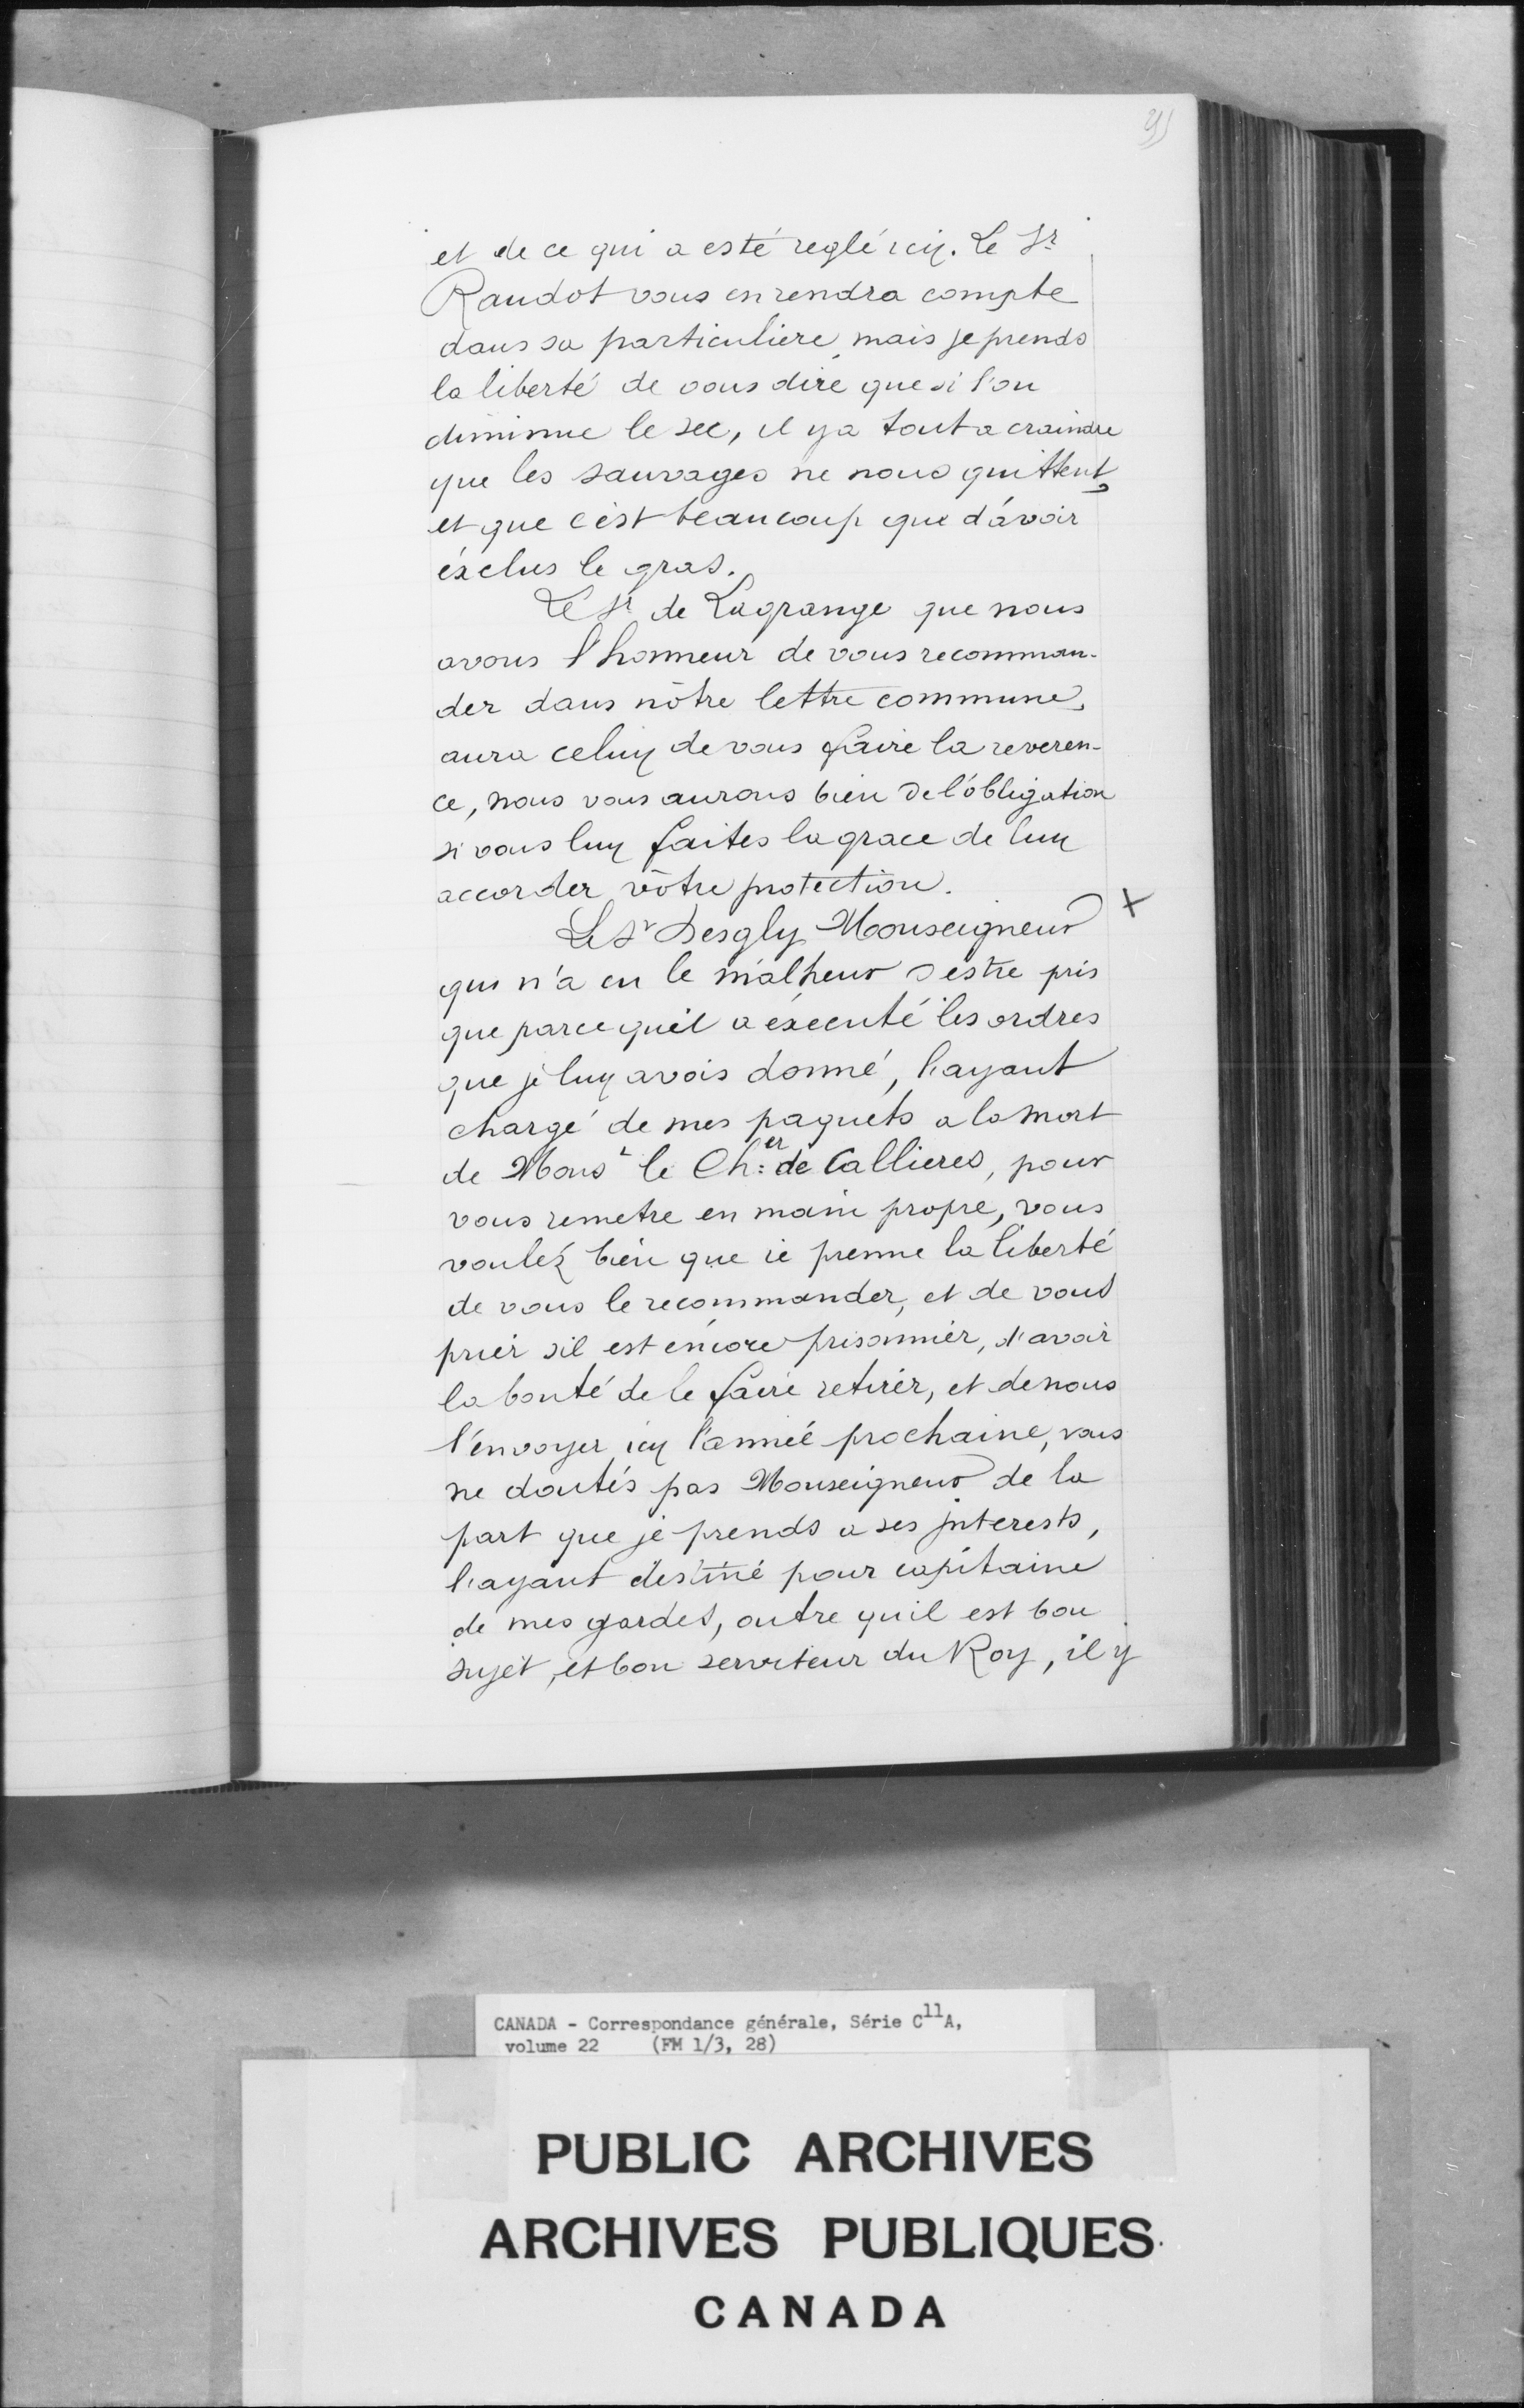 et de ce qui a esté reglé icy. Le Sr
Raudot vous en rendra compte
dans sa particuliere, mais je prends
la liberté de vous dire que si l'on
diminue le sec, il y a tout a craindre
que les sauvages ne nous quittent,
et que c'est beaucoup que d'avoir
éxclus le gras.
Le Sr de Lagrange que nous
avons l'honneur de vous recomman-
der dans nôtre lettre commune,
aura celuy de vous faire la reveren-
ce, nous vous aurons bien de l'obligation
si vous luy faites la grace de luy
accorder vôtre protection.
Le Sr Desgly Monseigneur X
qui n'a eu le malheur d'estre pris
que parce qu'il a éxecuté les ordres
que je luy avois donné, l'ayant
chargé de mes paquets a la mort
de Monsr le Ch:er de Callieres, pour
vous remetre en main propre, vous
voulez bien que ie prenne la liberté
de vous le recommander, et de vous
prier s'il est encore prisonnier, d'avoir
la bonté de le faire retirer, et de nous
l'envoyer icy l'année prochaine, vous
ne doutés pas Monseigneur de la
part que je prends a ses jnterests,
l'ayant destiné pour capitaine
de mes gardes, outre qu'il est bon
sujet, et bon serviteur du Roy, il y
CANADA - Correspondance générale, Série C11A,
volume 22 (FM 1/3, 28)
PUBLIC ARCHIVES
ARCHIVES PUBLIQUES
CANADA